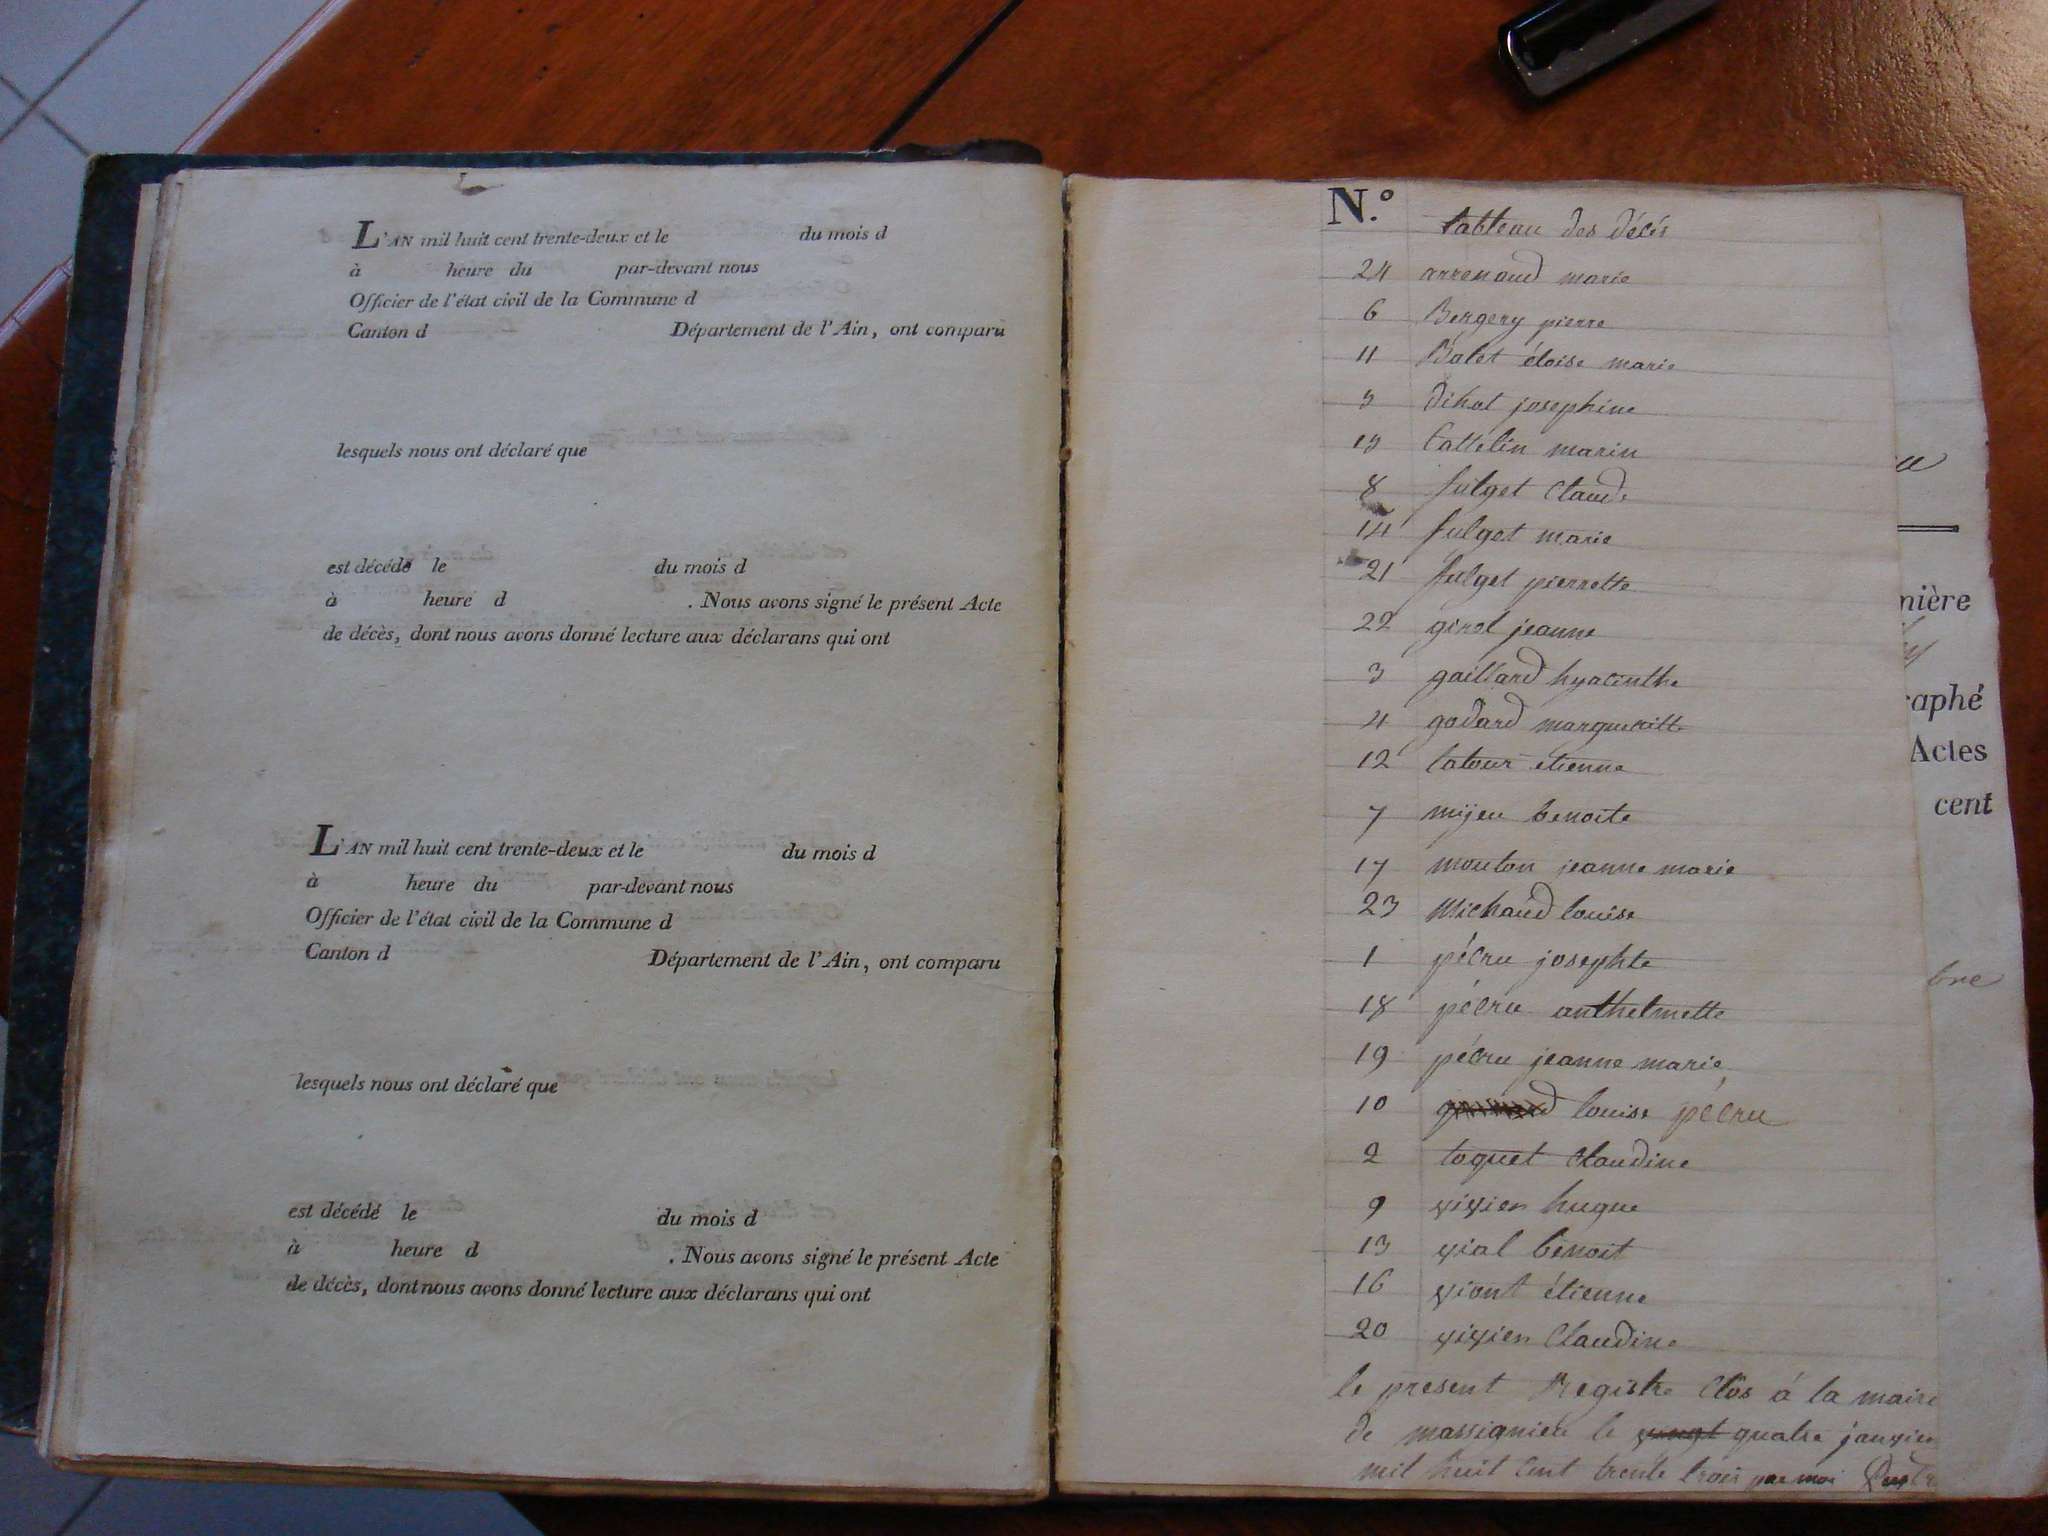 L'AN mil huit cent trente-deux et le du mois d
à heure du par-devant nous
Officier de l'état civil de la Commune d
Canton d Département de l'Ain, ont comparu
lesquels nous ont déclaré que
est décédé le du mois d
à heure d . Nous avons signé le présent Acte
de décès, dont nous avons donné lecture aux déclarans qui ont
L'AN mil huit cent trente-deux et le du mois d
à heure du par-devant nous
Officier de l'état civil de la Commune d
Canton d Département de l'Ain, ont comparu
lesquels nous ont déclaré que
est décédé le du mois d
à heure d . Nous avons signé le présent Acte
de décès, dont nous avons donné lecture aux déclarans qui ont
N.º tableau des décés
24 arrenaud marie
6 Bergery pierre
11 Balet éloise marie
5 dihat josephine
15 Cattelin marin
8 fulget Claude
14 fulget marie
21 fulget pierrette
22 girel jeanne
3 gaillard hyacinthe
4 godard margueritte
12 latour etienne
7 mijeu benoite
17 mouton jeanne marie
23 Michaud louise
1 pécru josephte
18 pécru anthelmette
19 pécru jeanne marie
10 louise pécru
2 toquet Claudine
9 vivien hugue
13 vial benoit
16 viont étienne
20 vivien Claudine
le present Registre Clos á la maire
de massignieu le vingt quatre janvier
mil huit cent trente trois par moi
nière
raphé
Actes
cent
bre